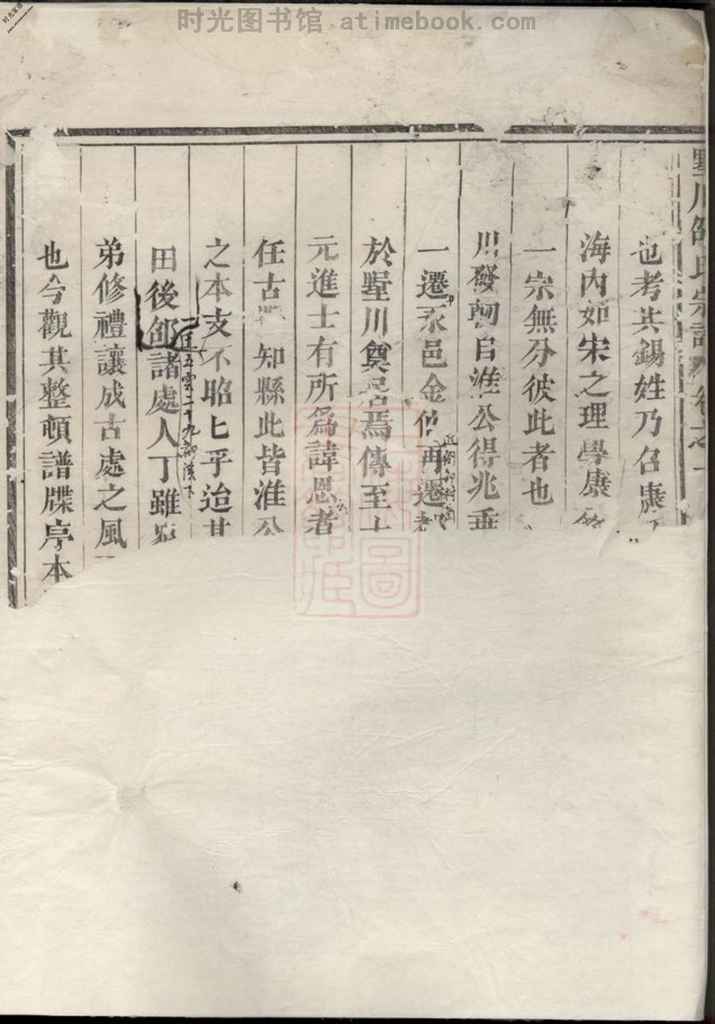 时光图书馆 atimebook.com
墅川邵氏宗譜 卷之一
也考其錫姓乃召康
海内如宋之理學康
一宗無分彼此者也
川發軔自淮公得兆垂
一遷永邑金 再遷
於墅川奠居焉傳至十
元進士有所爲諱恩者
任古 知縣此皆淮公
之本支不昭匕乎迨其
田後邵諸處人丁雖
弟修禮讓成古處之風
也今觀其整頓譜牒序本